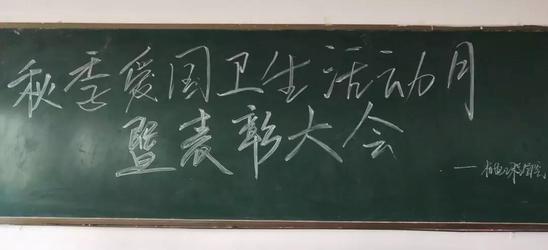 秋季爱国卫生活动月
暨表彰大会